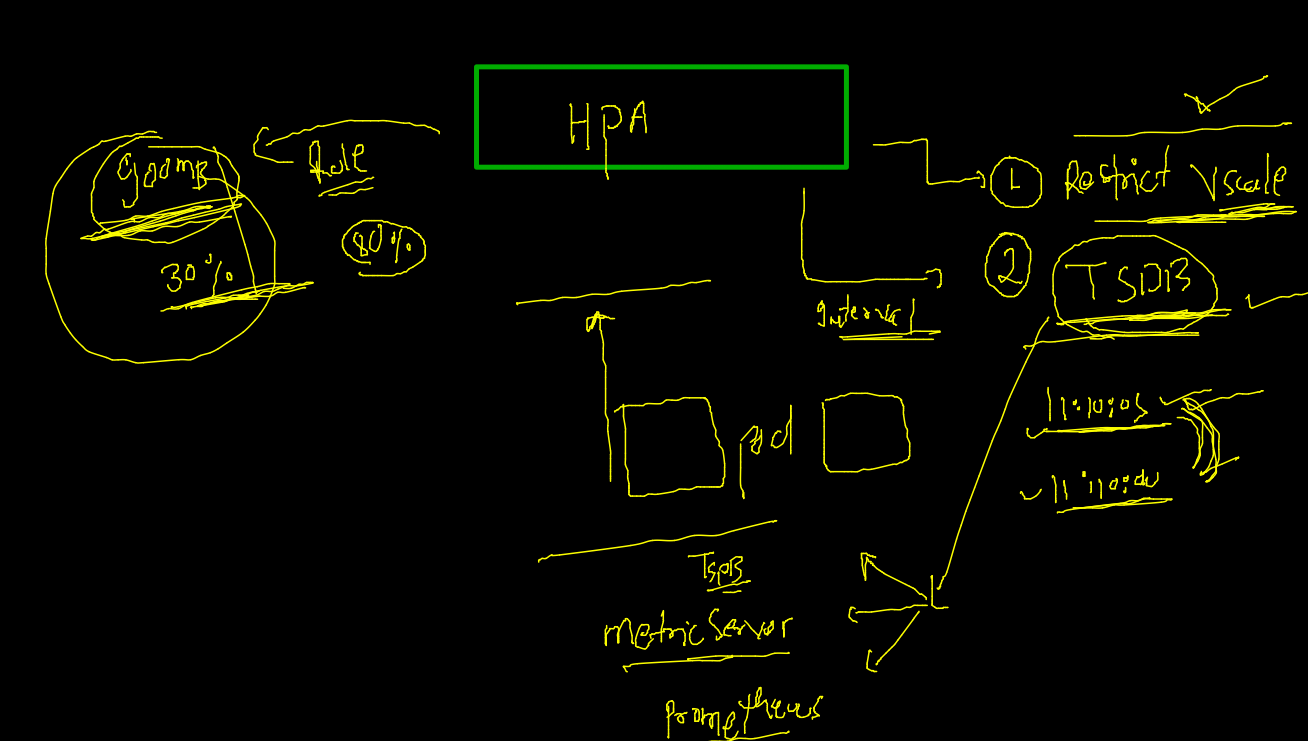 HPA
900MB
Rule
80%
30%
1 Restrict Vscale
2 TSDB
Interval
11:10:05
pod
TSDB
metric Server
Prometheus